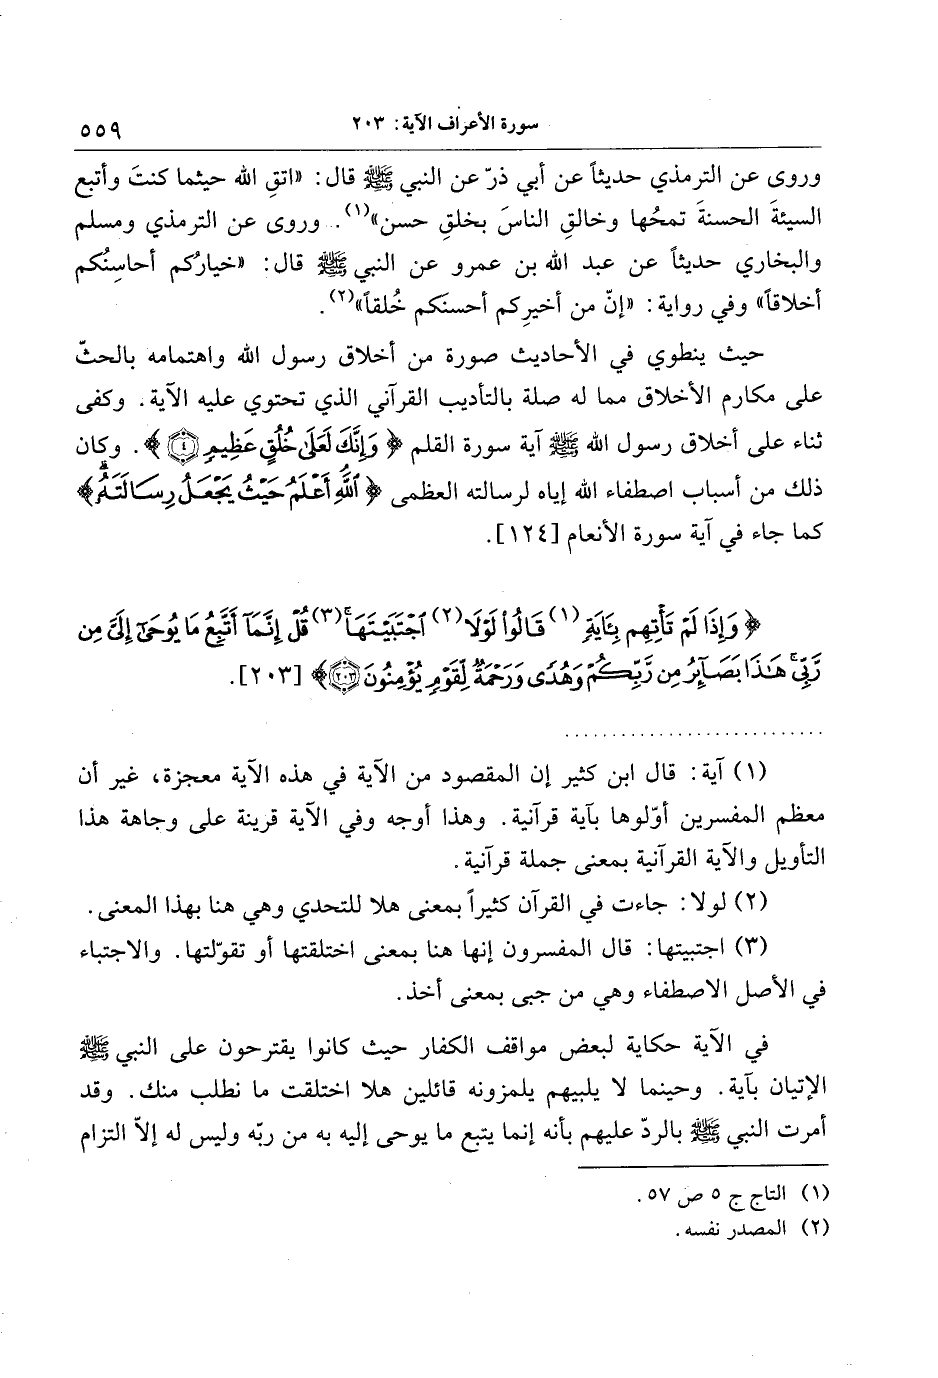 سورة الأعراف الآية: ٢٠٣
٥٥٩
وروى عن الترمذي حديثاً عن أبي ذرّ عن النبي ﷺ قال: «اتقِ الله حيثما كنتَ وأتبع
السيئةَ الحسنةَ تمحُها وخالقِ الناسَ بخلقِ حسن»(١). وروى عن الترمذي ومسلم
والبخاري حديثاً عن عبد الله بن عمرو عن النبي ﷺ قال: «خيارُكم أحاسِنُكم
أخلاقاً» وفي رواية: «إنّ من أخيرِكم أحسنَكم خُلقاً»(٢).
حيث ينطوي في الأحاديث صورة من أخلاق رسول الله واهتمامه بالحثّ
على مكارم الأخلاق مما له صلة بالتأديب القرآني الذي تحتوي عليه الآية. وكفى
ثناء على أخلاق رسول الله ﷺ آية سورة القلم ﴿ وَإِنَّكَ لَعَلَىٰ خُلُقٍ عَظِيمٍ ٤ ﴾. وكان
ذلك من أسباب اصطفاء الله إياه لرسالته العظمى ﴿ ٱللَّهُ أَعْلَمُ حَيْثُ يَجْعَلُ رِسَالَتَهُۥ ﴾
كما جاء في آية سورة الأنعام [١٢٤].
﴿ وَإِذَا لَمْ تَأْتِهِم بِـَٔايَةٍ(١) قَالُوا۟ لَوْلَا(٢) ٱجْتَبَيْتَهَا ۚ(٣) قُلْ إِنَّمَآ أَتَّبِعُ مَا يُوحَىٰٓ إِلَىَّ مِن
رَّبِّى ۚ هَـٰذَا بَصَآئِرُ مِن رَّبِّكُمْ وَهُدًى وَرَحْمَةٌ لِّقَوْمٍ يُؤْمِنُونَ ٢٠٣ ﴾ [٢٠٣].
..........................
(١) آية: قال ابن كثير إن المقصود من الآية في هذه الآية معجزة، غير أن
معظم المفسرين أوّلوها بآية قرآنية. وهذا أوجه وفي الآية قرينة على وجاهة هذا
التأويل والآية القرآنية بمعنى جملة قرآنية.
(٢) لولا: جاءت في القرآن كثيراً بمعنى هلا للتحدي وهي هنا بهذا المعنى.
(٣) اجتبيتها: قال المفسرون إنها هنا بمعنى اختلقتها أو تقوّلتها. والاجتباء
في الأصل الاصطفاء وهي من جبى بمعنى أخذ.
في الآية حكاية لبعض مواقف الكفار حيث كانوا يقترحون على النبي ﷺ
الإتيان بآية. وحينما لا يلبيهم يلمزونه قائلين هلا اختلقت ما نطلب منك. وقد
أمرت النبي ﷺ بالردّ عليهم بأنه إنما يتبع ما يوحى إليه به من ربّه وليس له إلاّ التزام
(١) التاج ج ٥ ص ٥٧.
(٢) المصدر نفسه.